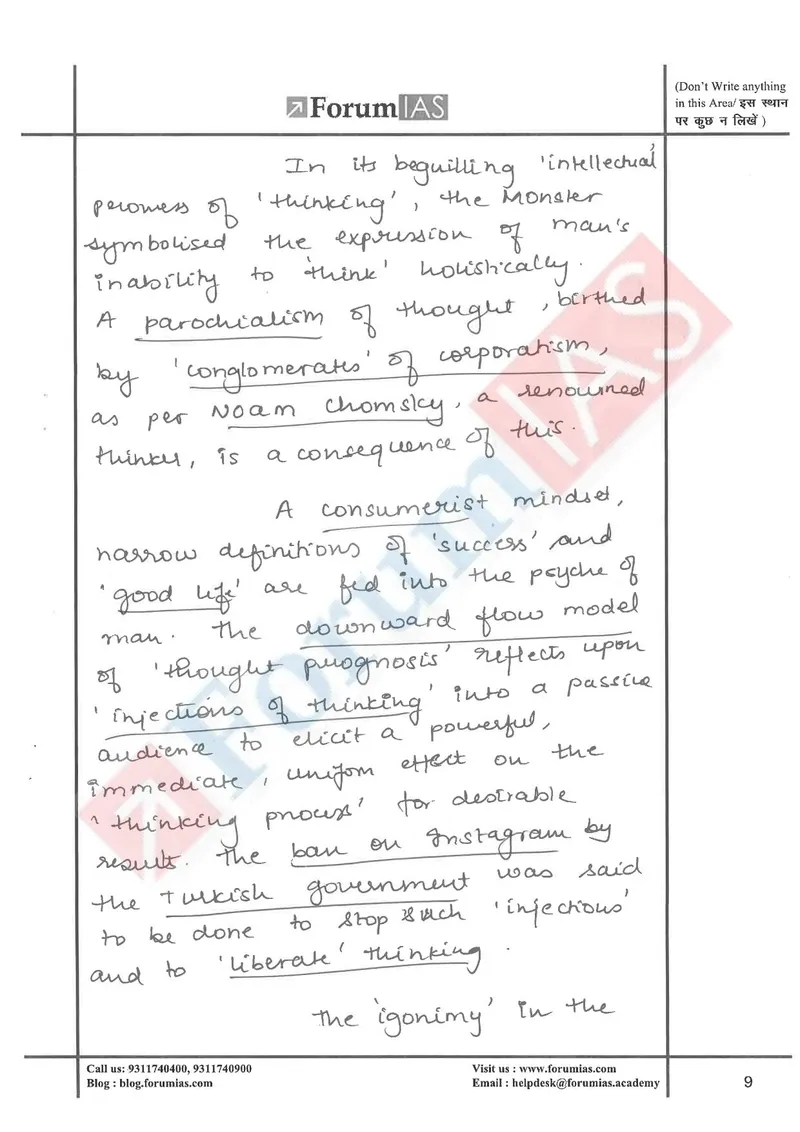 ForumIAS
(Don't Write anything
in this Area/ इस स्थान
पर कुछ न लिखें )
In its beguilling 'intellectual'
prowess of 'thinking', the Monster
symbolised the expression of man's
inability to 'think' holistically.
A parochialism of thought, birthed
by 'conglomerates' of corporatism,
as per Noam Chomsky, a renowned
thinker, is a consequence of this.
A consumerist mindset,
narrow definitions of 'success' and
'good life' are fed into the psyche of
man. The downward flow model
of 'thought prognosis' reflects upon
'injections of thinking' into a passive
audience to elicit a powerful,
immediate, uniform effect on the
'thinking process' for desirable
results. The ban on Instagram by
the Turkish government was said
to be done to stop such 'injections'
and to 'liberate' thinking.
The 'igonimy' in the
Call us: 9311740400, 9311740900
Blog : blog.forumias.com
Visit us : www.forumias.com
Email : helpdesk@forumias.academy
9
ForumIAS